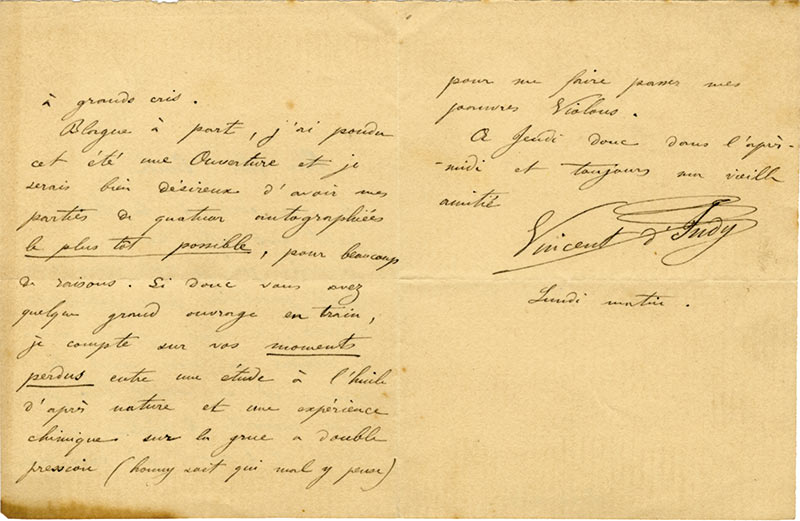 à grands cris.
Blague à part, j'ai pondu
cet été une Ouverture et je
serais bien désireux d'avoir mes
parties de quatuor autographiées
le plus tôt possible, pour beaucoup
de raisons. Si donc vous avez
quelque grand ouvrage en train,
je compte sur vos moments
perdus entre une étude à l'huile
d'après nature et une expérience
chimique sur la grue a double
pression (honny soit qui mal y pense)
pour me faire passer mes
pauvres Violons.
A Jeudi donc dans l'après-
-midi et toujours ma vieille
amitié
Vincent d'Indy
Lundi matin.